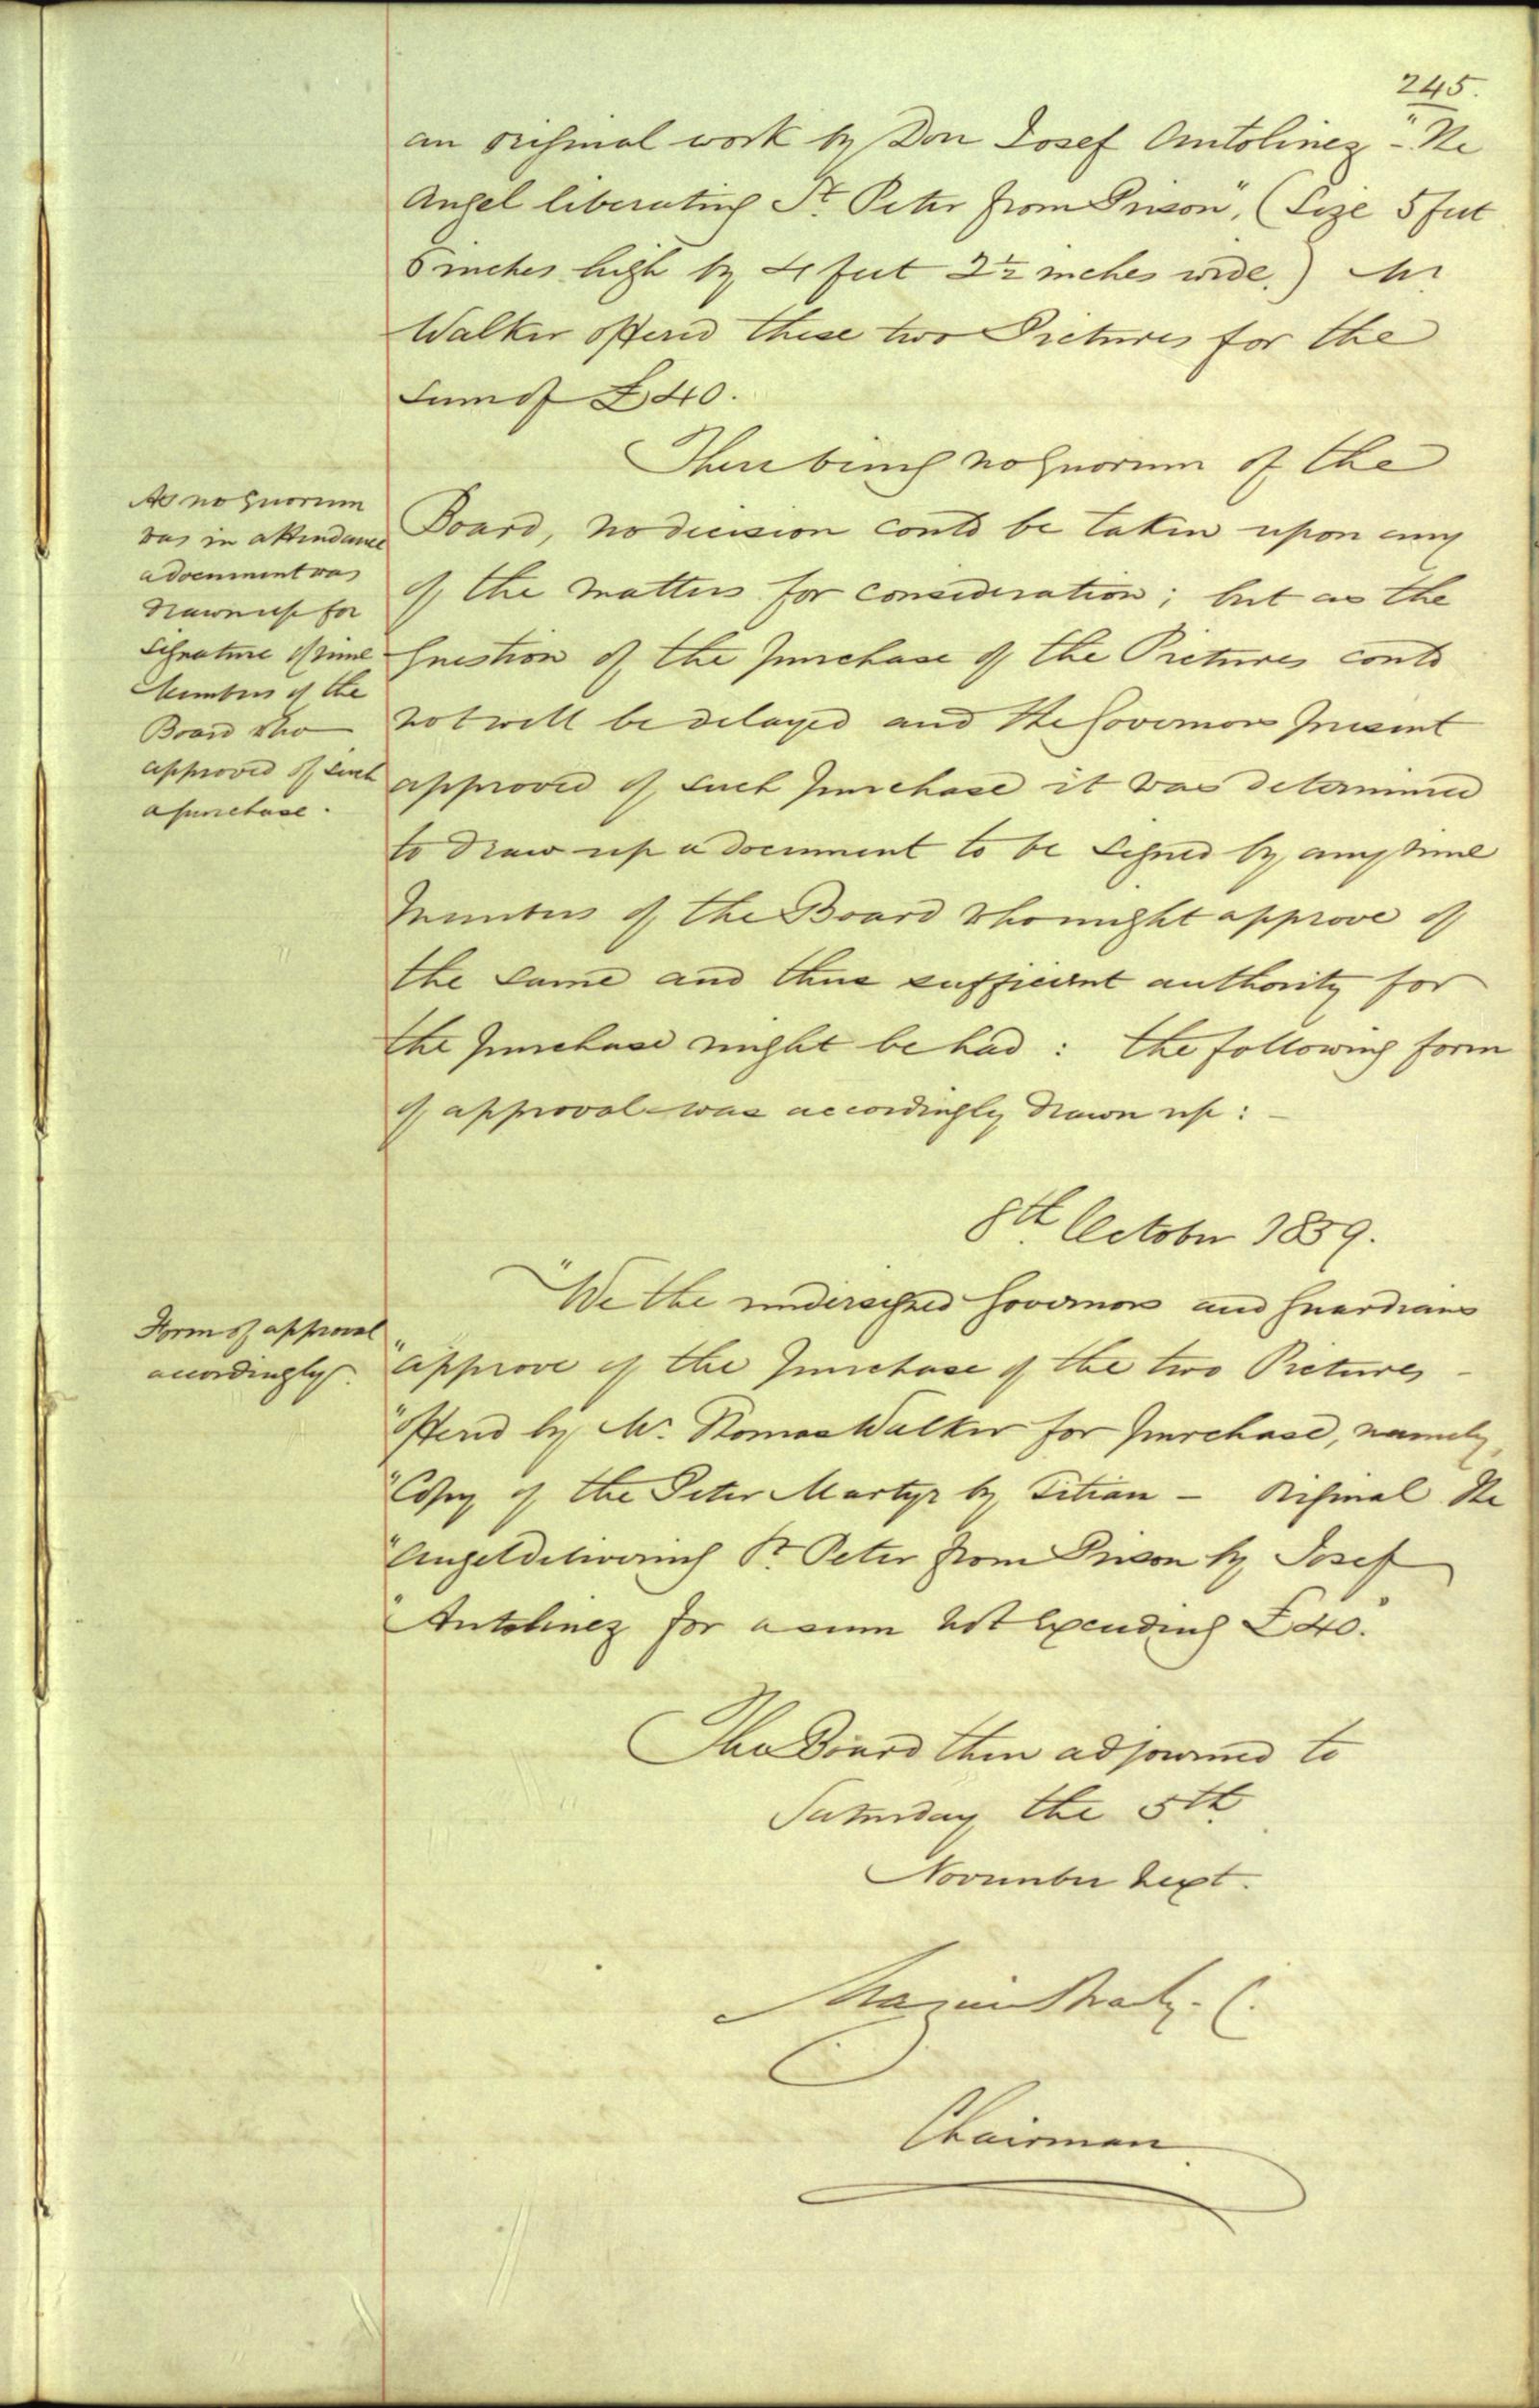 245.
an original work by Don Josef Antolinez - "The
Angel liberating St. Peter from Prison", (Size 5 feet
6 inches high by 4 feet 2½ inches wide.) Mr
Walker offered these two Pictures for the
Sum of £40.
There being no quorum of the
Board, no decision could be taken upon any
of the matters for consideration; but as the
question of the purchase of the Pictures could
not well be delayed and the Governors present
approved of such purchase it was determined
to draw up a document to be signed by any nine
Members of the Board who might approve of
the same and thus sufficient authority for
the purchase might be had: the following form
of approval was accordingly drawn up: -
As no quorum
was in attendance
a document was
drawn up for
signature of nine
Members of the
Board who
approved of such
a purchase.
8th October 1859.
"We the undersigned Governors and Guardians
"approve of the purchase of the two Pictures -
"offered by Mr. Thomas Walker for purchase, namely,
"Copy of the Peter Martyr by Titian - Original The
"Angel delivering St. Peter from Prison by Josef
"Antolinez for a sum not exceeding £40."
Form of approval
accordingly.
The Board then adjourned to
Saturday the 5th
November next.
Chairman